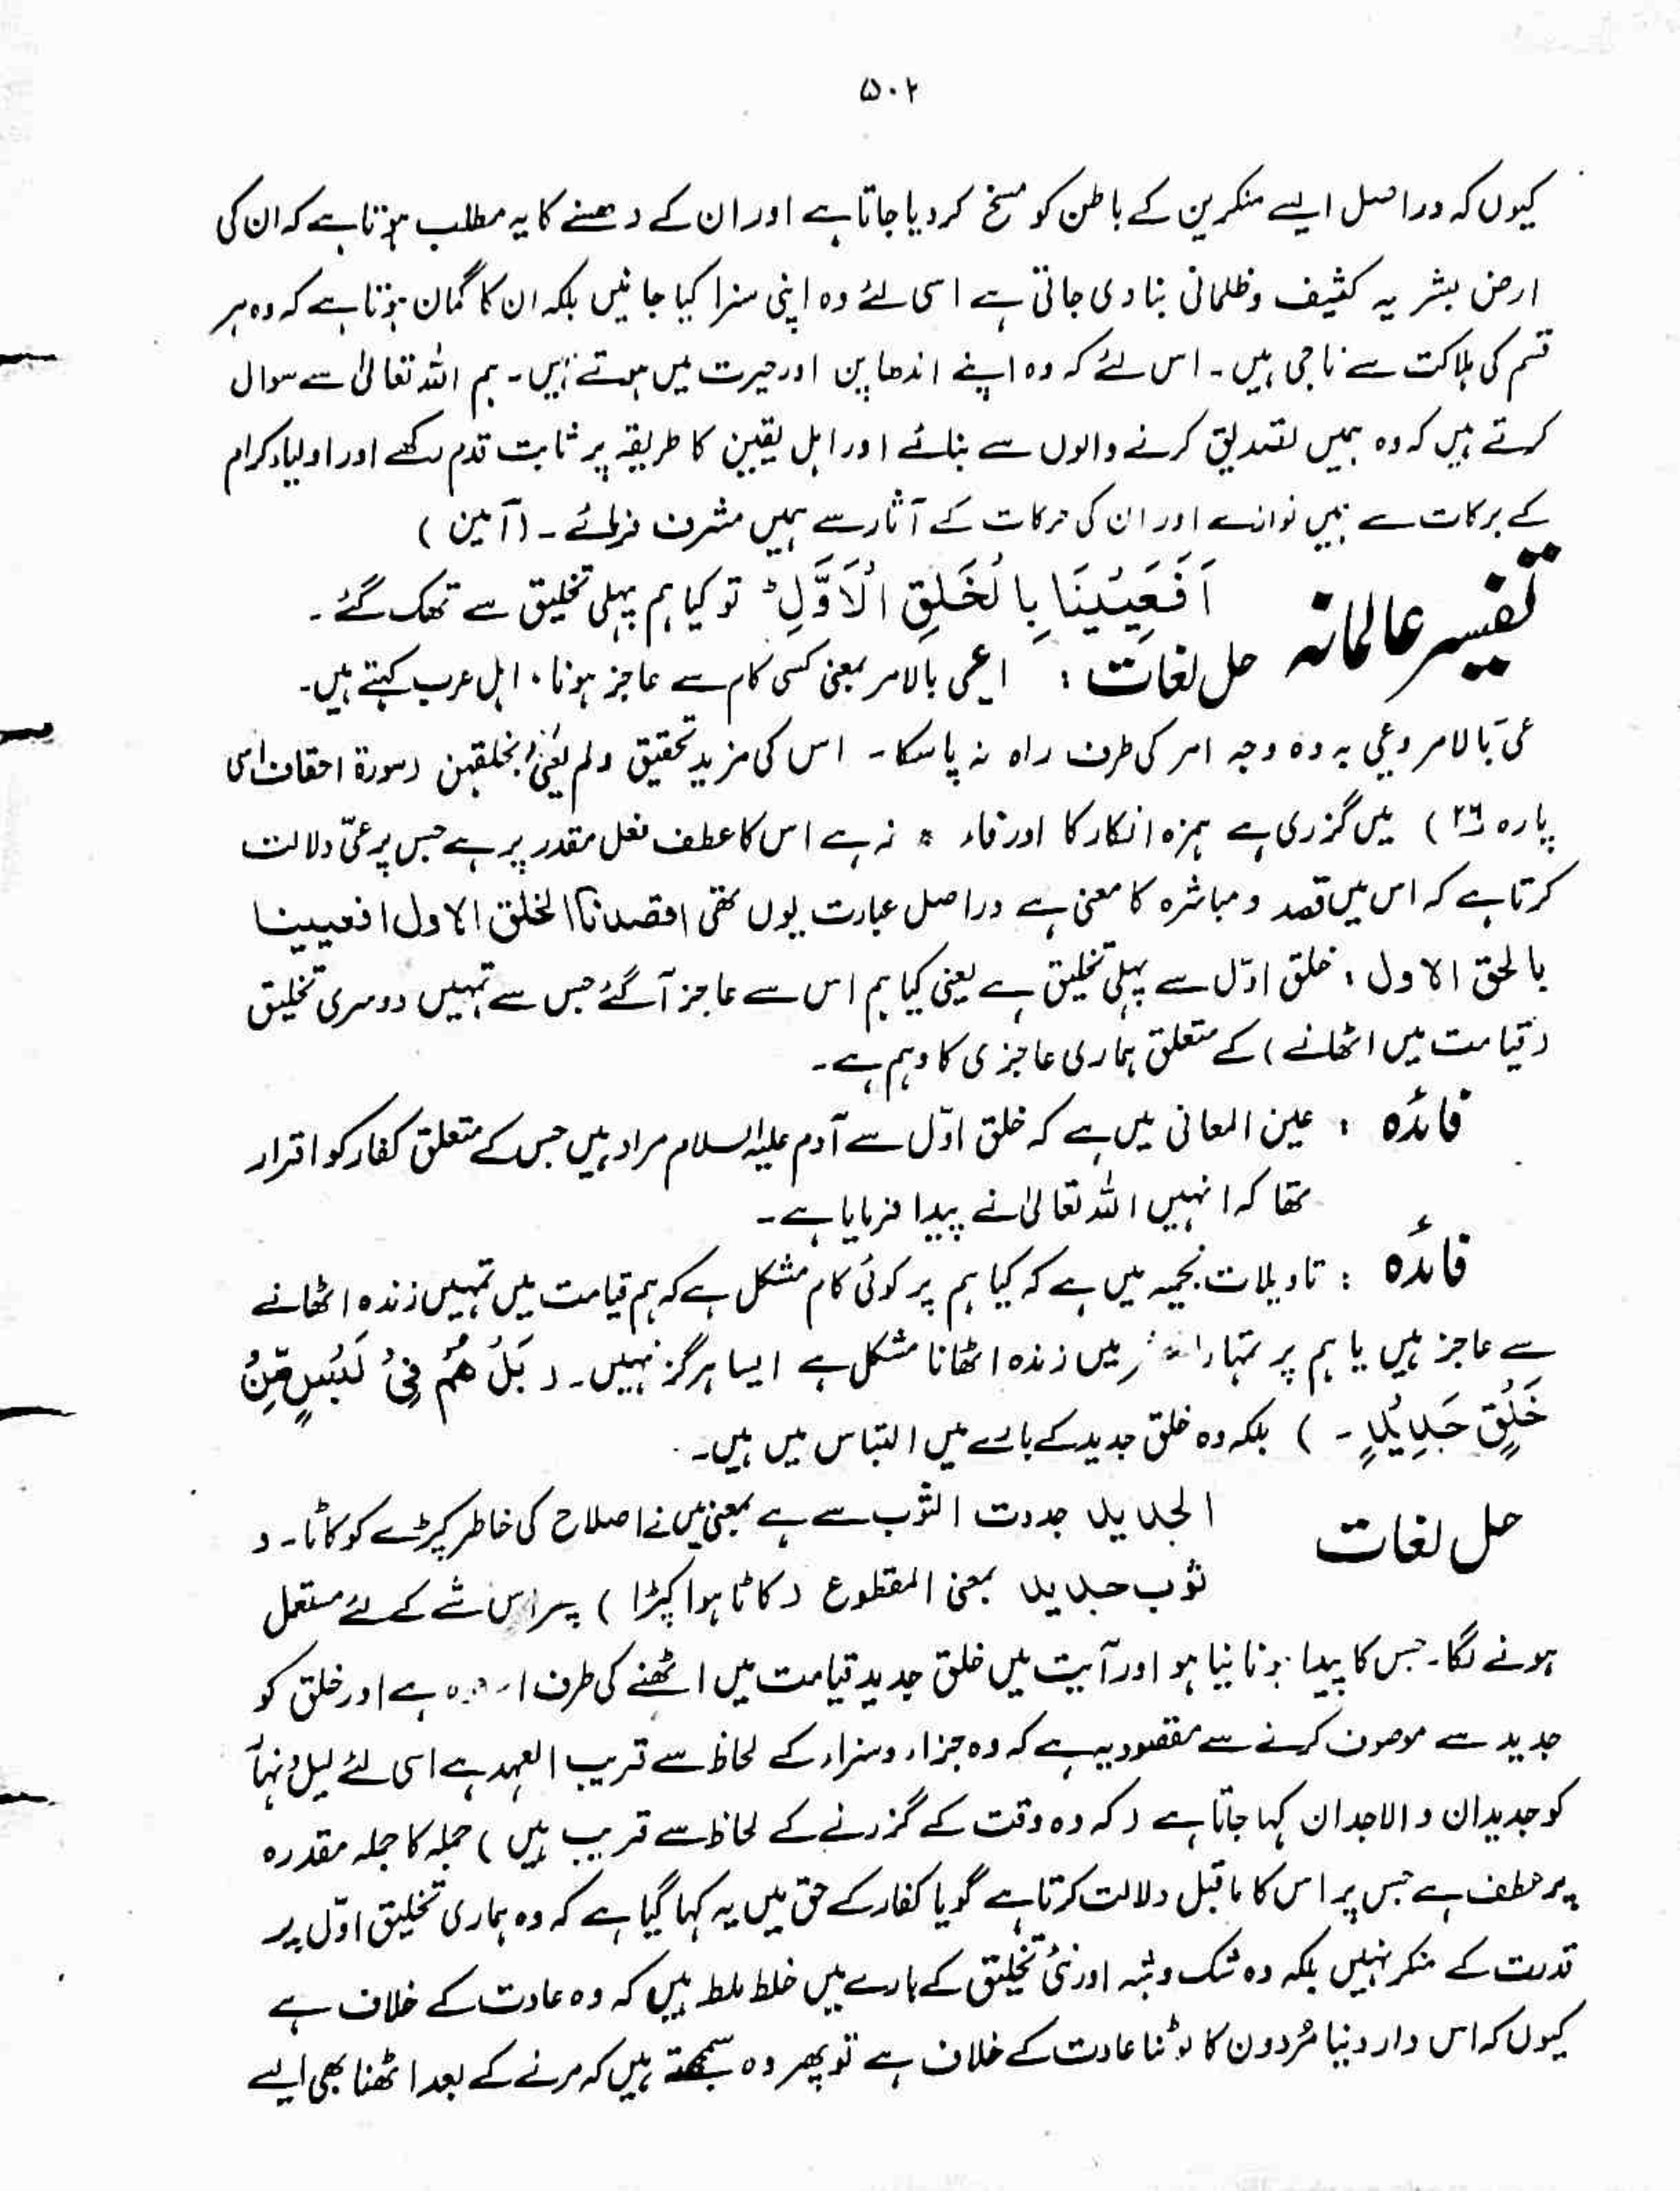 ۵۰۲
کیوں کہ دراصل ایسے منکرین کے باطن کو مسخ کر دیا جاتا ہے اور ان کے دھسنے کا یہ مطلب ہوتا ہے کہ ان کی
ارض بشریہ کثیف و ظلمانی بنا دی جاتی ہے اسی لئے وہ اپنی سزا کیا جانیں بلکہ ان کا گمان ہوتا ہے کہ وہ ہر
قسم کی ہلاکت سے ناجی ہیں۔ اس لئے کہ وہ اپنے اندھاپن اور حیرت میں ہوتے ہیں۔ ہم اللہ تعالیٰ سے سوال
کرتے ہیں کہ وہ ہمیں تصدیق کرنے والوں سے بنائے اور اہل یقین کا طریقہ پر ثابت قدم رکھے اور اولیاء کرام
کے برکات سے ہمیں نوازے اور ان کی حرکات کے آثار سے ہمیں مشرف فرمائے۔ (آمین)
تفسیر عالمانہ اَفَعَیِیْنَا بِالْخَلْقِ الْاَوَّلِ ؕ تو کیا ہم پہلی تخلیق سے تھک گئے۔
حل لغات : اعیی بالامر بمعنی کسی کام سے عاجز ہونا، اہل عرب کہتے ہیں۔
عیَ بالامر وعیی بہ وہ وجہ امر کی طرف راہ نہ پا سکا۔ اس کی مزید تحقیق ولم یعی بخلقہن (سورۃ احقاف اسی
پارہ ۲۶) میں گزری ہے ہمزہ انکار کا اور فاء ہے اس کا عطف فعل مقدر پر ہے جس پر عیّ دلالت
کرتا ہے کہ اس میں قصد و مباشرہ کا معنی ہے دراصل عبارت یوں تھی افقصدنا الخلق الاول افعیینا
بالحق الاول ، خلق اوّل سے پہلی تخلیق ہے یعنی کیا ہم اس سے عاجز آگئے جس سے تمہیں دوسری تخلیق
(قیامت میں اٹھانے) کے متعلق ہماری عاجزی کا وہم ہے۔
فائدہ : عین المعانی میں ہے کہ خلق اوّل سے آدم علیہ السلام مراد ہیں جس کے متعلق کفار کو اقرار
تھا کہ انہیں اللہ تعالیٰ نے پیدا فرمایا ہے۔
فائدہ : تاویلات نجمیہ میں ہے کہ کیا ہم پر کوئی کام مشکل ہے کہ ہم قیامت میں تمہیں زندہ اٹھانے
سے عاجز ہیں یا ہم پر تمہارا میں زندہ اٹھانا مشکل ہے ایسا ہرگز نہیں۔ (بَلْ هُمْ فِیْ لَبْسٍ مِّنْ
خَلْقٍ جَدِیْدٍ۔) بلکہ وہ خلق جدید کے بارے میں التباس میں ہیں۔
حل لغات الجدید جددت الثوب سے ہے بمعنی میں نے اصلاح کی خاطر کپڑے کو کاٹا۔ و
ثوب جدید بمعنی المقطوع (کاٹا ہوا کپڑا) پھر اس شے کے لئے مستعمل
ہونے لگا۔ جس کا پیدا ہونا نیا ہو اور آیت میں خلق جدید قیامت میں اٹھنے کی طرف ہے اور خلق کو
جدید سے موصوف کرنے سے مقصود یہ ہے کہ وہ جزاء و سزاء کے لحاظ سے قریب العہد ہے اسی لئے لیل و نہار
کو جدیدان و الاجدان کہا جاتا ہے (کہ وہ وقت کے گزرنے کے لحاظ سے قریب ہیں) جملہ کا جملہ مقدرہ
پر عطف ہے جس پر اس کا ماقبل دلالت کرتا ہے گویا کفار کے حق میں یہ کہا گیا ہے کہ وہ ہماری تخلیق اوّل پر
قدرت کے منکر نہیں بلکہ وہ شک و شبہ اور نئی تخلیق کے بارے میں خلط ملط ہیں کہ وہ عادت کے خلاف ہے
کیوں کہ اس دار دنیا مُردوں کا لوٹنا عادت کے خلاف ہے تو پھر وہ سمجھتے ہیں کہ مرنے کے بعد اٹھنا بھی ایسے